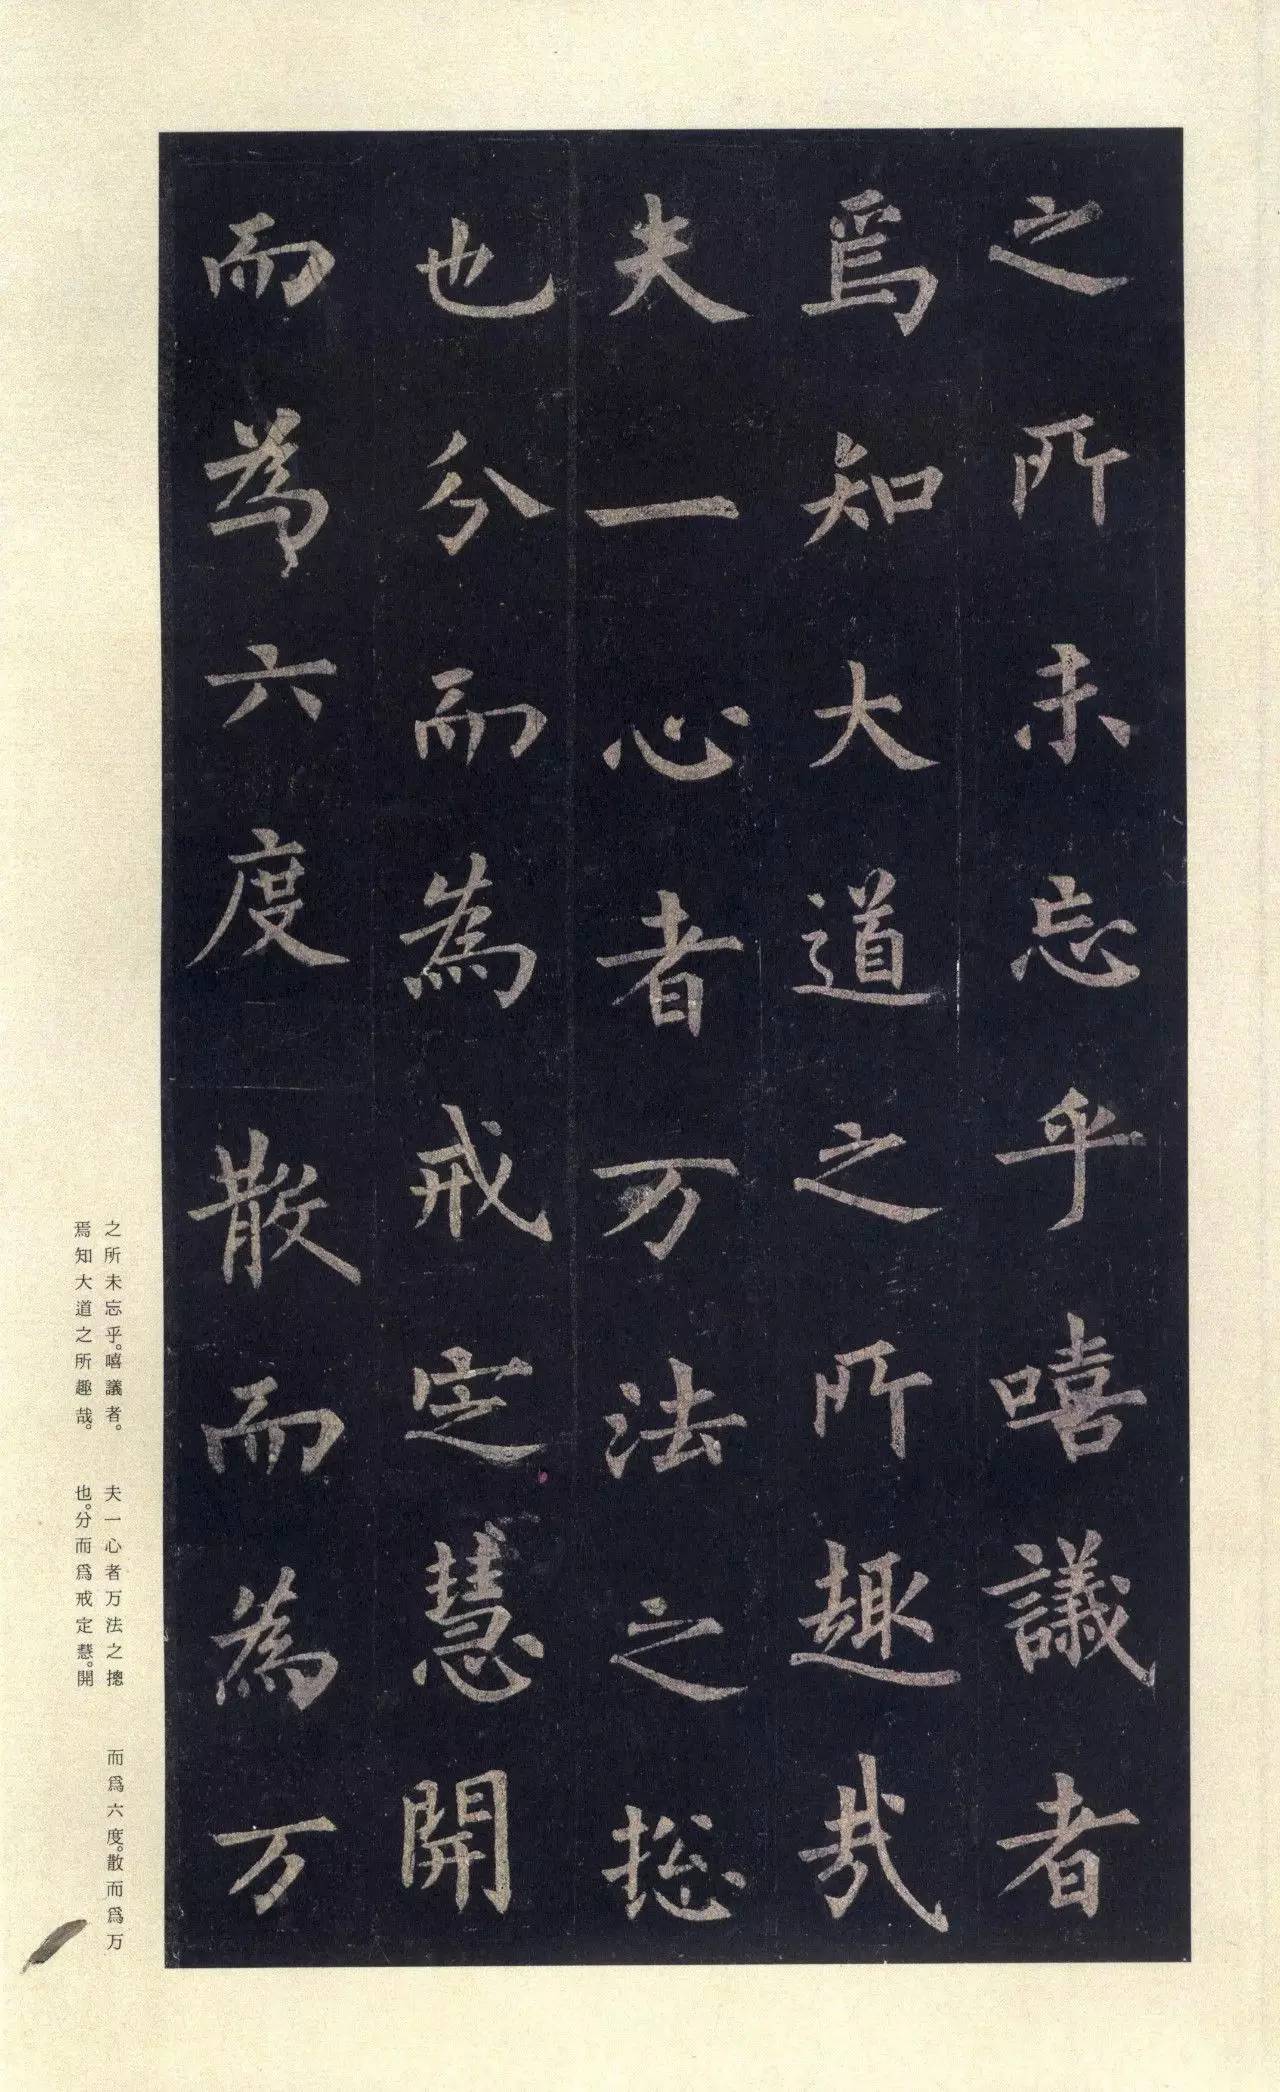 之所未忘乎嘻議者
焉知大道之所趣哉
夫一心者万法之揔
也分而為戒定慧開
而為六度散而為万
之所未忘乎。嘻議者。
焉知大道之所趣哉。
夫一心者万法之摠
也。分而爲戒定慧。開
而爲六度。散而爲万